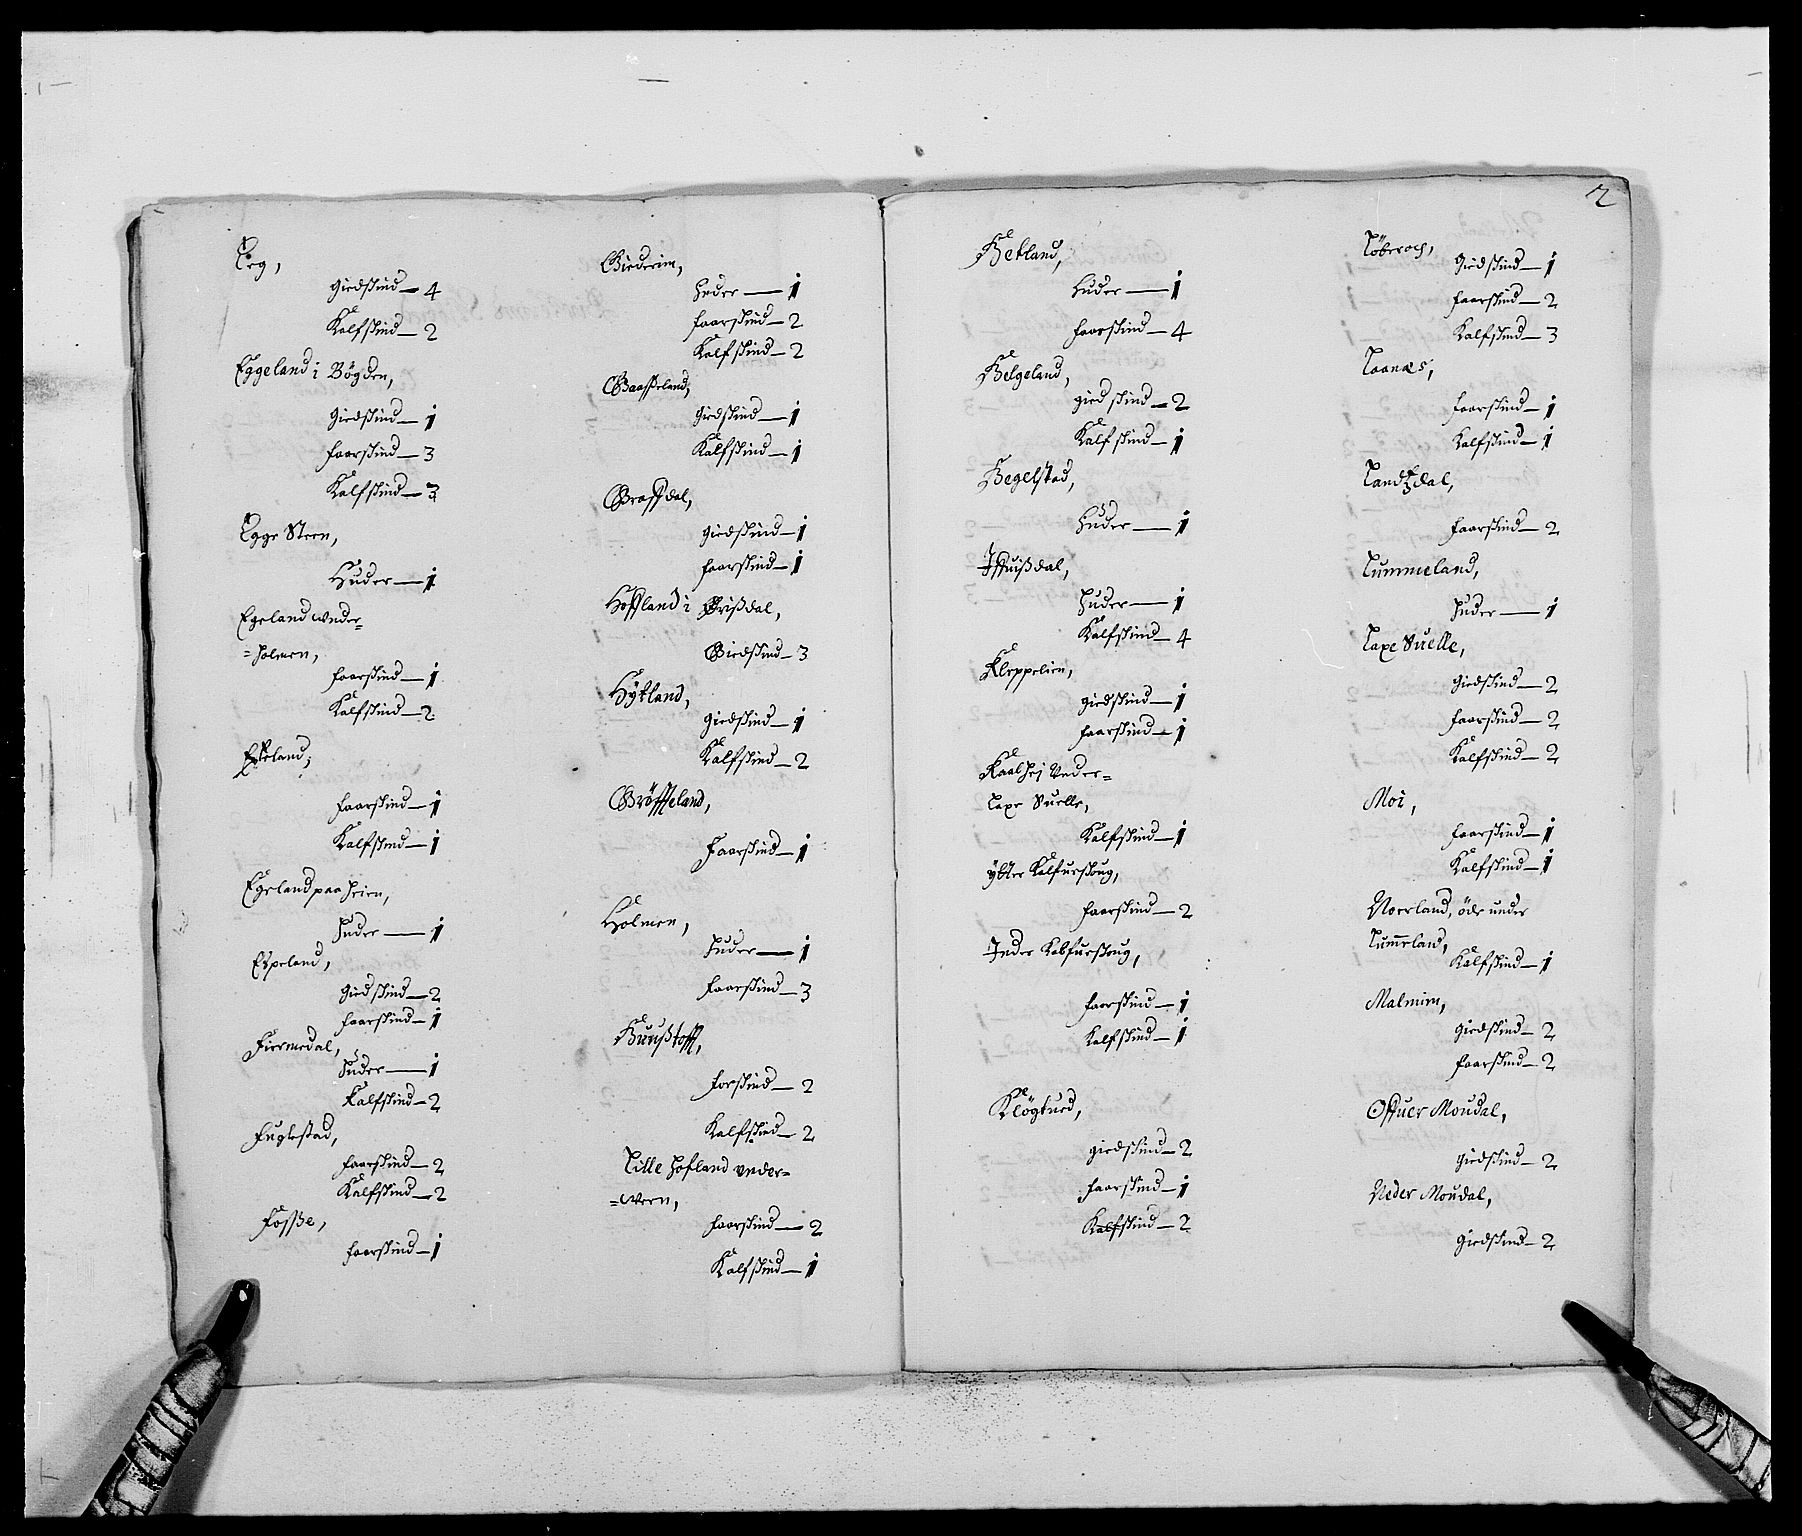 Eeg,
Giedskind — 4
Kalfskind — 2
Eggeland i Bögden,
Giedskind — 1
faarskind — 3
Kalfskind — 3
Egge Steen,
Huder — 1
Egeland under=
=holmen,
faarskind — 1
Kalfskind — 2
Eskeland,
faarskind — 1
Kalfskind — 1
Egeland paa heien,
Huder — 1
Espeland,
Giedskind — 2
faarskind — 1
Fiermedal,
Huder — 1
Kalfskind — 2
Fuglestad,
faarskind — 2
Kalfskind — 2
Fosse,
faarskind — 1
Giederim,
Huder — 1
faarskind — 2
Kalfskind — 2
Gaasseland,
Giedskind — 1
Kalfskind — 1
Grafsdal,
Giedskind — 1
faarskind — 1
Hoffland i Grißdal,
Giedskind — 3
Hÿtland,
Giedskind — 1
Kalfskind — 2
Gröffteland,
Faarskind — 1
Holmen,
Huder — 1
Faarskind — 3
Huußtofft,
forskind — 2
Kalfskind — 2
Lille Hofland under=
=Wern,
faarskind — 2
Kalfskind — 1
2
Hetland,
Huder — 1
faarskind — 4
Helgeland,
giedskind — 2
Kalfskind — 1
Hegelstad,
Huder — 1
Iffuißdal,
Huder — 1
Kalfskind — 4
Kleppelien,
giedskind — 1
faarskind — 1
Kaalhej Under=
Laxe Suelle,
Kalfskind — 1
ÿtter Kalfurskoug,
faarskind — 2
Inder Kalfurskoug,
faarskind — 1
Kalfskind — 1
Klögtued,
giedskind — 2
faarskind — 1
Kalfskind — 2
Löberach,
Giedskind — 1
faarskind — 2
Kalfskind — 3
Laanæs,
faarskind — 1
Kalfskind — 1
Landtzdal,
faarskind — 2
Lummeland,
Huder — 1
Laxe Suelle,
Giedskind — 2
faarskind — 2
Kalfskind — 2
Moi,
faarskind — 1
Kalfskind — 1
Noerland, öde under
Lum̄eland,
Kalfskind — 1
Malmim,
Giedskind — 2
faarskind — 2
Offuer Moudal,
Giedskind — 2
Neder Moudal,
Giedskind — 2